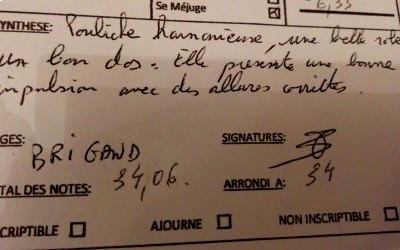 Se Méjuge
6,33
YNTHESE: Pouliche harmonieuse, une belle
un bon dos. Elle présente une bonne
impulsion avec des allures correctes.
GES: BRIGAND
SIGNATURES:
TAL DES NOTES: 34,06.
ARRONDI A: 34
CRIPTIBLE
AJOURNE
NON INSCRIPTIBLE